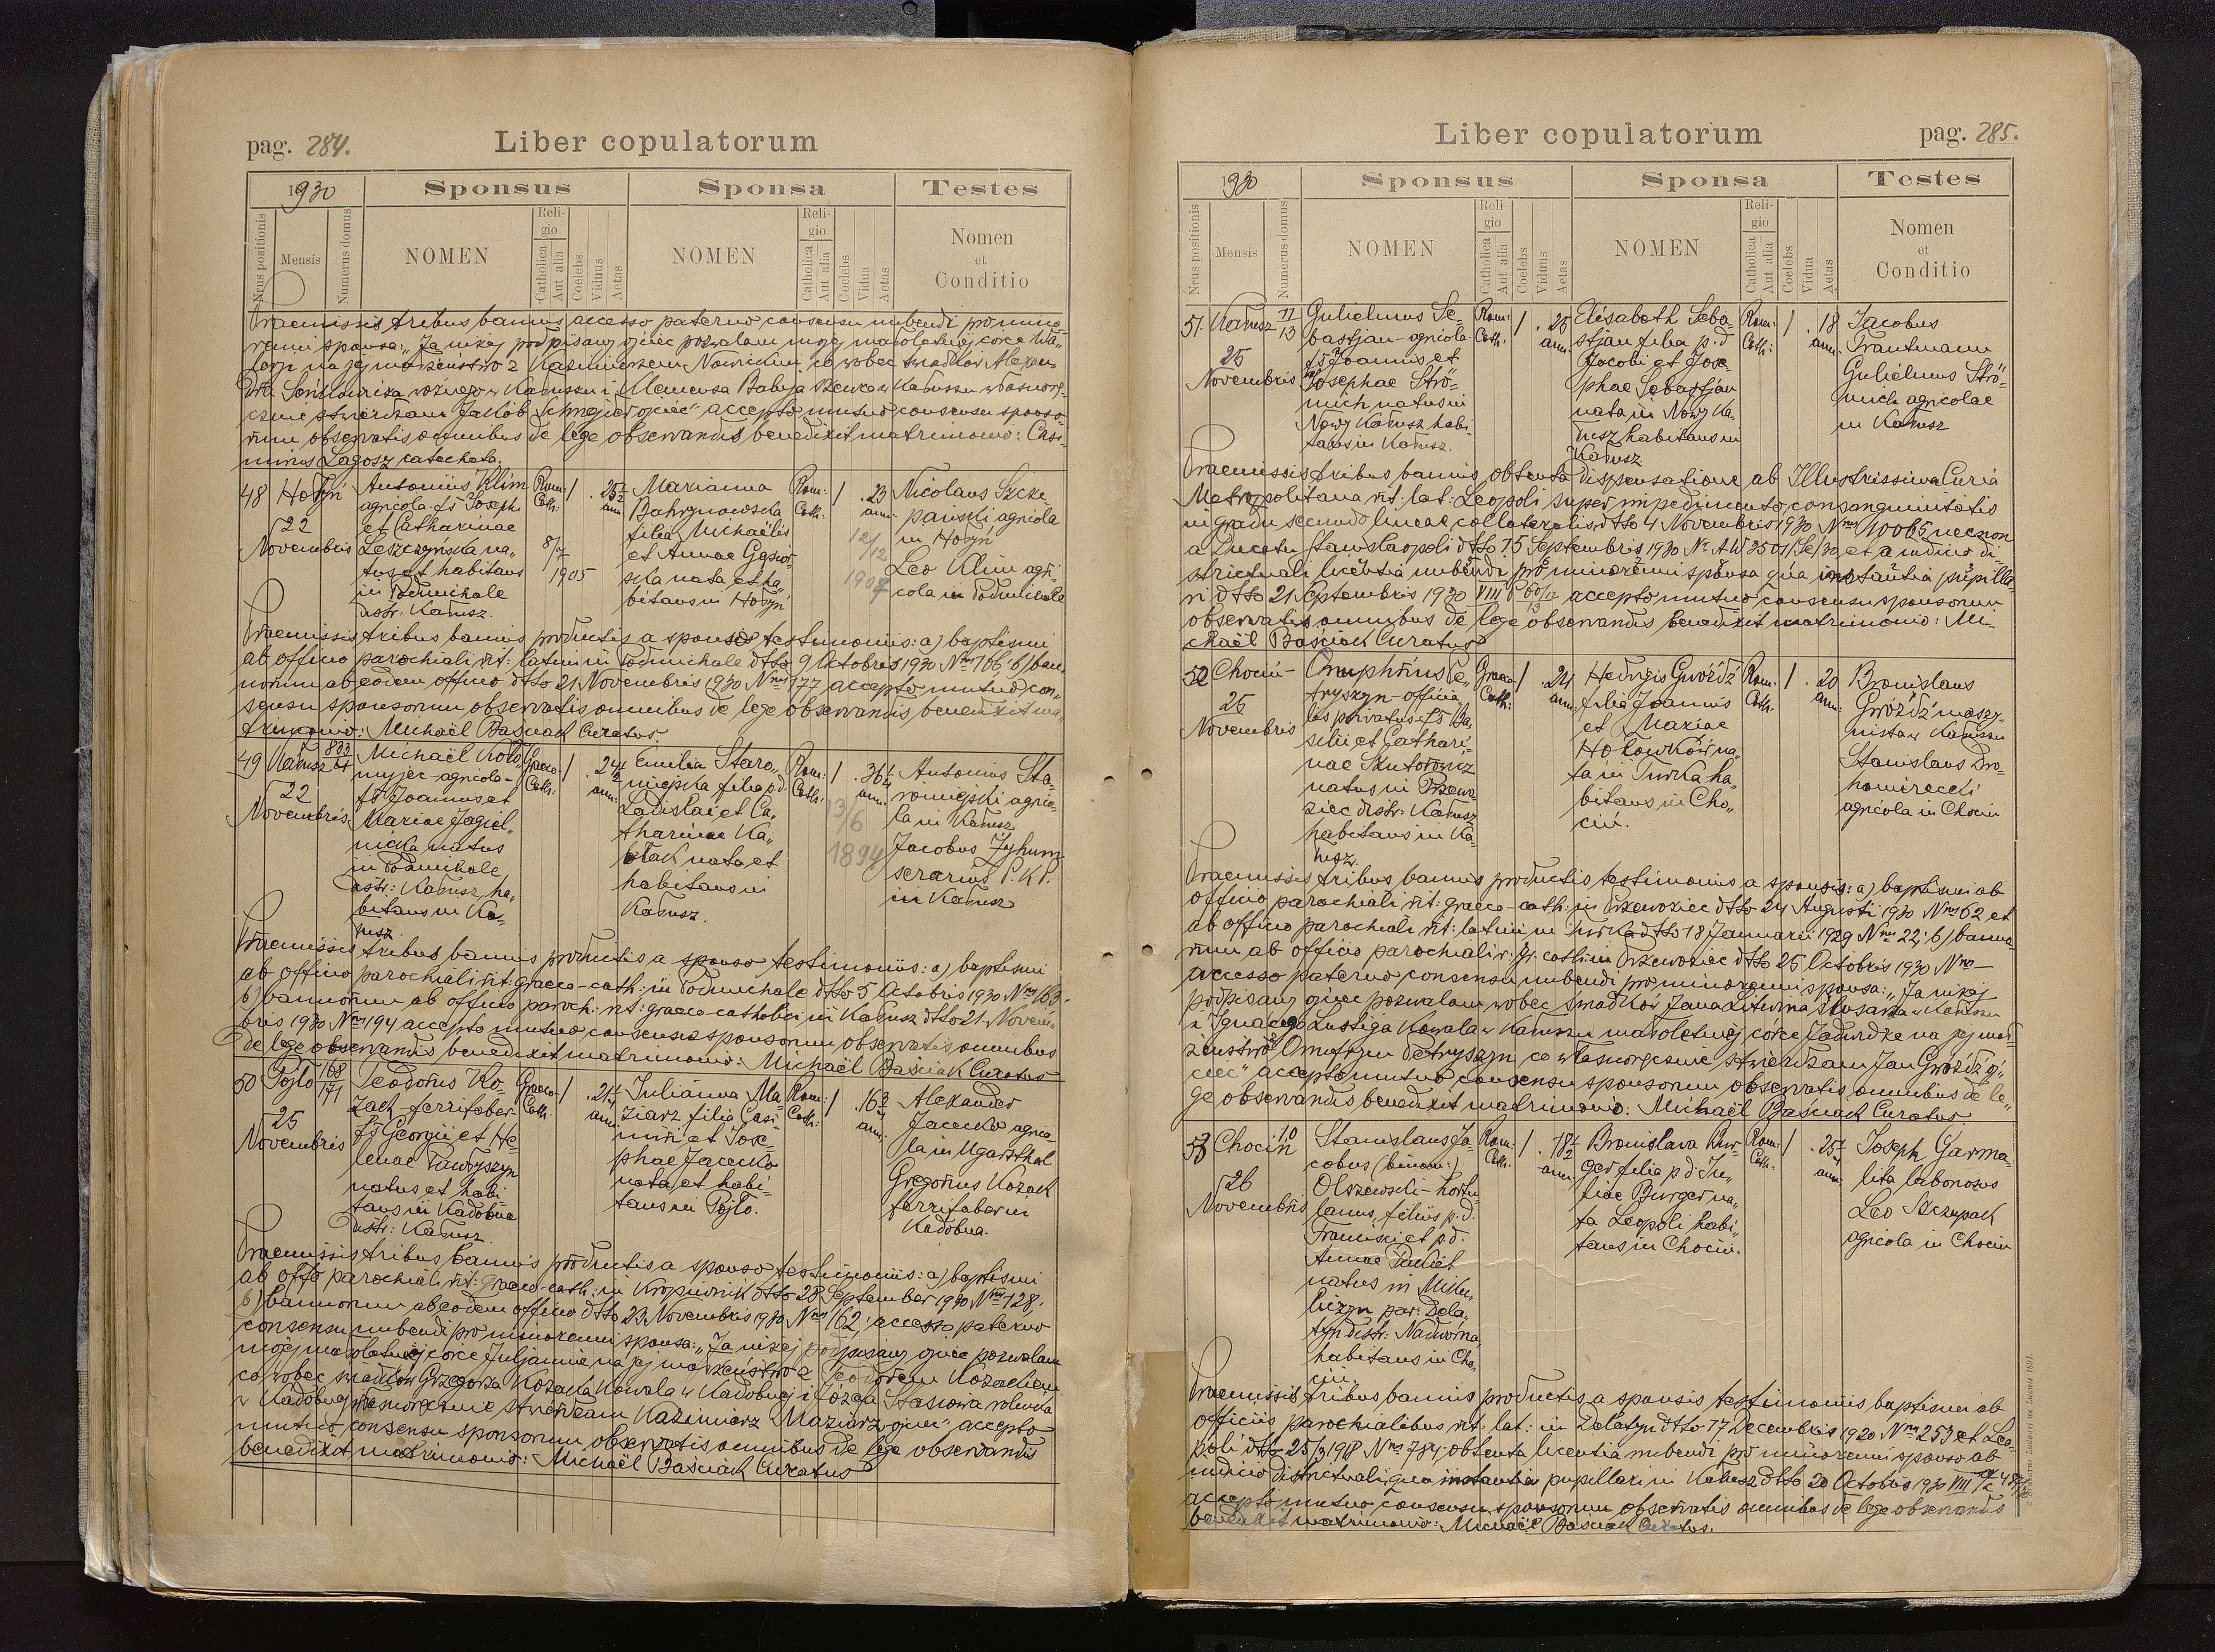 pag. 284. Liber copulatorum
1930 Sponsus Sponsa Testes
Nrus positionis Mensis Numerus domus NOMEN Religio Catholica Aut alia Coelebs Viduus Aetas NOMEN Religio Catholica Aut alia Coelebs Vidua Aetas Nomen et Conditio
Praemissis tribus bannis accesso paterno consensu nubendi pro mino-
renni sponsa: „Ja niżej podpisany ojciec pozwalam mojej małoletniej córce Wa-
lerji na jej małżeństwo z Kazimierzem Nowickim co wobec świadków Alexan-
dra woźnego w Kałuszu i Klemensa Babija szewca w Kałuszu własnorę-
cznie stwierdzam Jakób ojciec" accepto mutuo consensu sponso-
rum observatis omnibus de lege observandis benedixit matrimonio: Casi-
mirus Lagosz catecheta.
48 Hołyń
22
Novembris
Antonius Klim
agricola fs Josephi
et Catharinae
Leszczyńska na-
tus et habitans
in Podmichale
distr. Kałusz.
Rom: Cath: 1 . 25½ ann:
8/7 1905
Marianna
Bahrynowska
filia Michaëlis
et Annae Gąsior-
ska nata et ha-
bitans in Hołyń
Rom: Cath: 1 . 23 ann:
12/12 1907
Nicolaus Szcze
pański agricola
in Hołyń
Leo Klim agri-
cola in Podmichale
Praemissis tribus bannis productis a sponso testimoniis: a) baptismi
ab officio parochiali rit: latini in Podmichale dtto 9 Octobris 1930 Nrus 166, b) ban-
norum ab eodem officio dtto 21 Novembris 1930 Nrus 177 accepto mutuo con-
sensu sponsorum observatis omnibus de lege observandis benedixit ma-
trimonio: Michaël Baściak Curatus.
49 Kałusz 833
22
Novembris
Michaël Koło-
myjec agricola-
fs Joannis et
Mariae Jagiel-
nicka natus
in Podmichale
distr: Kałusz ha-
bitans in Ka-
łusz
Graeco Cath: 1 . 24½ ann:
Emilia Staro-
miejska filia p.d.
Ladislai et Ca-
tharinae Ka-
błak nata et
habitans in
Kałusz.
Rom: Cath: 1 . 36½ ann:
13/6 1894
Antonius Sta-
romiejski agrico-
la in Kałusz
Jacobus Zyhum
serarius P.K.P.
in Kałusz
Praemissis tribus bannis productis a sponso testimoniis: a) baptismi
ab officio parochiali rit: graeco-cath: in Podmichale dtto 5 Octobris 1930 Nrus 163-
b) bannorum ab officio paroch: rit: graeco catholici in Kałusz dtto 21 Novem-
bris 1930 Nrus 194 accepto mutuo consensu sponsorum observatis omnibus
de lege observandis benedixit matrimonio: Michaël Baściak Curatus
50 Pójło 168 171
25
Novembris
Teodorus Ko-
zack-ferrifaber
fs Georgii et He-
lenae Tawryszyn
natus et habi-
tans in Kadobna
distr: Kałusz.
Graeco Cath: 1 . 24 ann:
Julianna Ma-
ziarz filia Casi-
miri et Jose-
phae Jacecko
nata et habi-
tans in Pójło.
Rom: Cath: 1 . 16 ann:
Alexander
Jacecko agrico-
la in Ugartsthal
Gregorius Kozack
ferrifaber in
Kadobna.
Praemissis tribus bannis productis a sponso testimoniis: a) baptismi
ab offo parochiali rit: Graeco-cath: in Kropiwnik dtto 28 September 1930 Nrus 128,
b) bannorum ab eodem officio dtto 23 Novembris 1930 Nrus 162, accesso paterno
consensu nubendi pro minorenni sponsa: „Ja niżej podpisany ojciec pozwalam
mojej małoletniej córce Juljannie na jej małżeństwo z Teodorem Kozackiem
co wobec świadków Grzegorza Kozacka kowala w Kadobnej i Józefa Stasiowa rolnika
w Kadobnej własnoręcznie stwierdzam Kazimierz Maziarz ojciec" accepto
mutuo consensu sponsorum observatis omnibus de lege observandis
benedixit matrimonio: Michaël Baściak Curatus
Liber copulatorum pag. 285.
1930 Sponsus Sponsa Testes
Nrus positionis Mensis Numerus domus NOMEN Religio Catholica Aut alia Coelebs Viduus Aetas NOMEN Religio Catholica Aut alia Coelebs Vidua Aetas Nomen et Conditio
51. Kałusz II 13
25
Novembris
Gulielmus Se-
bastjan-agricola
fs Joannis et
Josephae Strö-
mich natus in
Nowy Kałusz habi-
tans in Kałusz.
Rom: Cath: 1 . 25 ann:
Elisabeth Seba-
stjan filia p.d
Jacobi et Jose-
phae Sebastjan
nata in Nowy Ka-
łusz habitans in
Kałusz
Rom: Cath: 1 . 18 ann:
Jacobus
Trautmann
Gulielmus Strö-
mich agricolae
in Kałusz
Praemissis tribus bannis, obtenta dispensatione ab Illustrissima Curia
Metropolitana rit: lat: Leopoli super impedimento consanguinitatis
in gradu secundo lineae collateralis dtto 4 Novembris 1930 Nrus 10065 necnon
a Ducatu Stanislaopoli dtto 15 Septembris 1930 Nr AW 3501/Se/30, et a iudicio di-
strictuali licentia nubendi pro minorenni sponsa qua instantia pupilla-
ri dtto 21 Septembris 1930 VIII accepto mutuo consensu sponsorum
observatis omnibus de lege observandis benedixit matrimonio: Mi-
chaël Baściack Curatus
52 Chocin-
25
Novembris
Onuphrius Pe-
tryszyn-officia-
lis privatus-fs Ba-
silii et Cathari-
nae Skutorowicz
natus in Przewo-
ziec distr: Kałusz
habitans in Ka-
łusz.
Graeco Cath: 1 . 24 ann:
Hedvigis Gwóźdź
filia Joannis
et Mariae
Hołowków na-
ta in Turka ha-
bitans in Cho-
cin.
Rom: Cath: 1 . 20 ann:
Bronislaus
Gwóźdź maszy-
nista w Kałuszu
Stanislaus Dro-
homirecki
agricola in Chocin
Praemissis tribus bannis productis testimoniis a sponsis: a) baptismi ab
officio parochiali rit: graeco-cath: in Przewoziec dtto 24 Augusti 1930 Nrus 62 et
ab officio parochiali rit: latini in Turka dtto 18 Januarii 1929 Nrus 22; b) banno-
rum ab officio parochiali r: gr. cath: in Przewoziec dtto 25 Octobris 1930 Nrus-
accesso paterno consensu nubendi pro minorenni sponsa: „Ja niżej
podpisany ojciec pozwalam wobec świadków Jana Litwina ślusarza w Kałuszu
i Ignacego Lustiga Kowala w Kałuszu małoletniej córce Jadwidze na jej mał-
żeństwo Onufrym Petryszyn co własnoręcznie stwierdzam Jan Gwóźdź oj-
ciec" accepto mutuo consensu sponsorum observatis omnibus de le-
ge observandis benedixit matrimonio: Michaël Baściack Curatus
53 Chocin 10
26
Novembris
Stanislaus Ja-
cobus (binom:)
Olszewski-hortu-
lanus, filius p.d.
Francisci et p.d.
Annae
natus in Miku-
liczyn par: Dela-
tyn distr: Nadwórna
habitans in Cho-
cin.
Rom: Cath: 1 . 18½ ann:
Bronislava Bur-
ger filia p d: Ju-
liae Burger na-
ta Leopoli habi-
tans in Chocin.
Rom: Cath: 1 . 25 ann:
Joseph Garma-
lita laboriosus
Leo Szczupack
agricola in Chocin
Praemissis tribus bannis productis a sponsis testimoniis baptismi ab
officiis parochialibus rit: lat: in Delatyn dtto 17 Decembris 1920 Nrus 253 et Leo-
poli dtto 25/3 1918 Nrus 784; obtenta licentia nubendi pro minorenni sponso ab
iudicio districtuali qua instantia pupillari in Kałusz dtto 20 Octobris 1930 VIII
accepto mutuo consensu sponsorum observatis omnibus de lege observandis
benedixit matrimonio: Michaël Baściack Curatus.